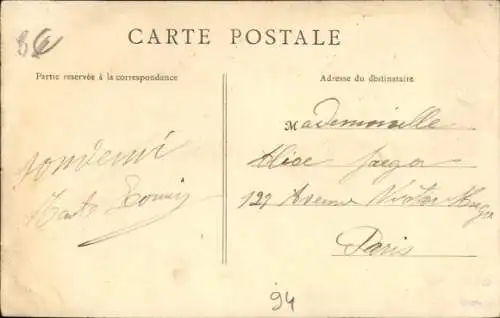 CARTE POSTALE
Partie reservée à la correspondance
Adresse du destinataire
Mademoiselle
Alice Jaeger
127 Avenue Victor Hugo
Paris
94